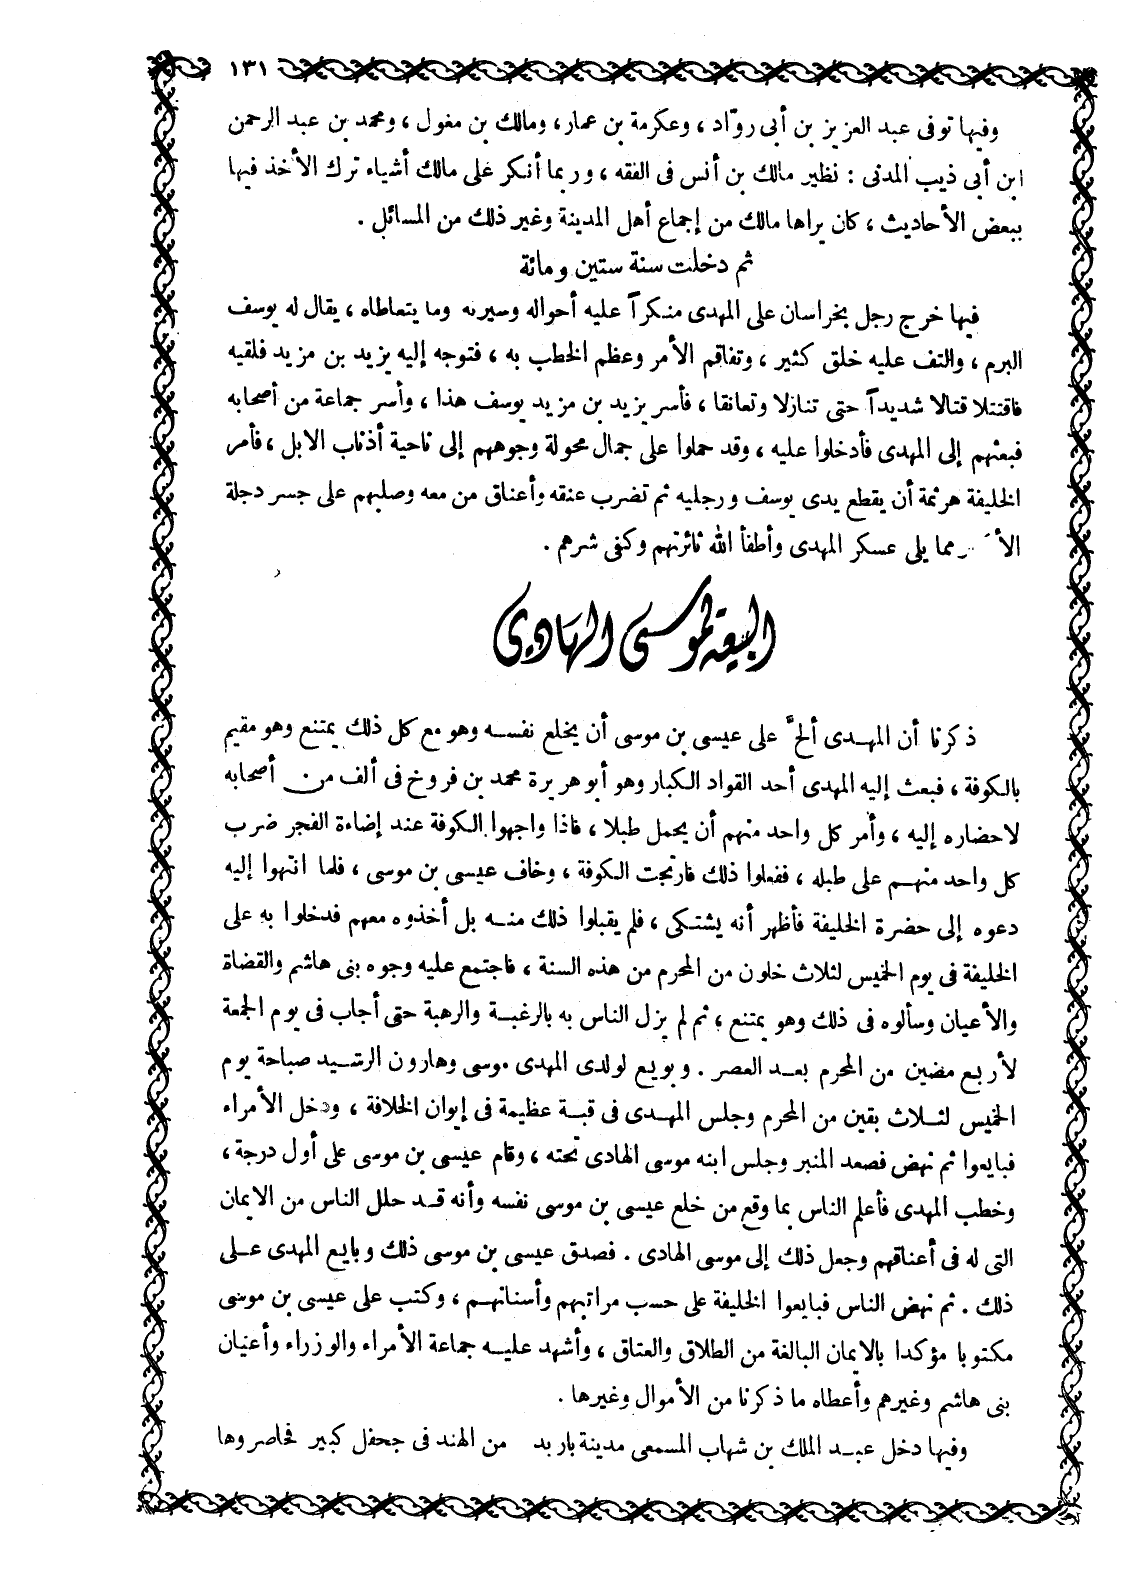 ١٣١
وفيها توفى عبد العزيز بن أبى روّاد ، وعكرمة بن عمار، ومالك بن مغول ، ومحمد بن عبد الرحمن
ابن أبى ذيب المدنى : نظير مالك بن أنس فى الفقه ، وربما أنكر على مالك أشياء ترك الأخذ فيها
ببعض الأحاديث ، كان يراها مالك من إجماع أهل المدينة وغير ذلك من المسائل .
ثم دخلت سنة ستين ومائة
فيها خرج رجل بخراسان على المهدى منكراً عليه أحواله وسيرته وما يتعاطاه ، يقال له يوسف
البرم ، والتف عليه خلق كثير ، وتفاقم الأمر وعظم الخطب به ، فتوجه إليه يزيد بن مزيد فلقيه
فاقتتلا قتالا شديداً حتى تنازلا وتعانقا ، فأسر يزيد بن مزيد يوسف هذا ، وأسر جماعة من أصحابه
فبعثهم إلى المهدى فأدخلوا عليه ، وقد حملوا على جمال محولة وجوههم إلى ناحية أذناب الابل ، فأمر
الخليفة هرثمة أن يقطع يدى يوسف ورجليه ثم تضرب عنقه وأعناق من معه وصلبهم على جسر دجلة
مما يلى عسكر المهدى وأطفأ الله ثائرتهم وكفى شرهم .
البيعة لموسى الهادى
ذكرنا أن المهدى ألحَّ على عيسى بن موسى أن يخلع نفسه وهو مع كل ذلك يمتنع وهو مقيم
بالكوفة ، فبعث إليه المهدى أحد القواد الكبار وهو أبو هريرة محمد بن فروخ فى ألف من أصحابه
لاحضاره إليه ، وأمر كل واحد منهم أن يحمل طبلا ، فاذا واجهوا الكوفة عند إضاءة الفجر ضرب
كل واحد منهم على طبله ، ففعلوا ذلك فارتجت الكوفة ، وخاف عيسى بن موسى ، فلما انتهوا إليه
دعوه إلى حضرة الخليفة فأظهر أنه يشتكى ، فلم يقبلوا ذلك منه بل أخذوه معهم فدخلوا به على
الخليفة فى يوم الخميس لثلاث خلون من المحرم من هذه السنة ، فاجتمع عليه وجوه بنى هاشم والقضاة
والأعيان وسألوه فى ذلك وهو يمتنع ، ثم لم يزل الناس به بالرغبة والرهبة حتى أجاب فى يوم الجمعة
لأربع مضين من المحرم بعد العصر . وبويع لولدى المهدى موسى وهارون الرشيد صباحة يوم
الخميس لثلاث بقين من المحرم وجلس المهدى فى قبة عظيمة فى إيوان الخلافة ، ودخل الأمراء
فبايعوا ثم نهض فصعد المنبر وجلس ابنه موسى الهادى تحته ، وقام عيسى بن موسى على أول درجة ،
وخطب المهدى فأعلم الناس بما وقع من خلع عيسى بن موسى نفسه وأنه قد حلل الناس من الايمان
التى له فى أعناقهم وجعل ذلك إلى موسى الهادى . فصدق عيسى بن موسى ذلك وبايع المهدى على
ذلك . ثم نهض الناس فبايعوا الخليفة على حسب مراتبهم وأسنانهم ، وكتب على عيسى بن موسى
مكتوبا مؤكدا بالايمان البالغة من الطلاق والعتاق ، وأشهد عليه جماعة الأمراء والوزراء وأعيان
بنى هاشم وغيرهم وأعطاه ما ذكرنا من الأموال وغيرها .
وفيها دخل عبد الملك بن شهاب المسمعى مدينة باربد من الهند فى جحفل كبير فحاصروها